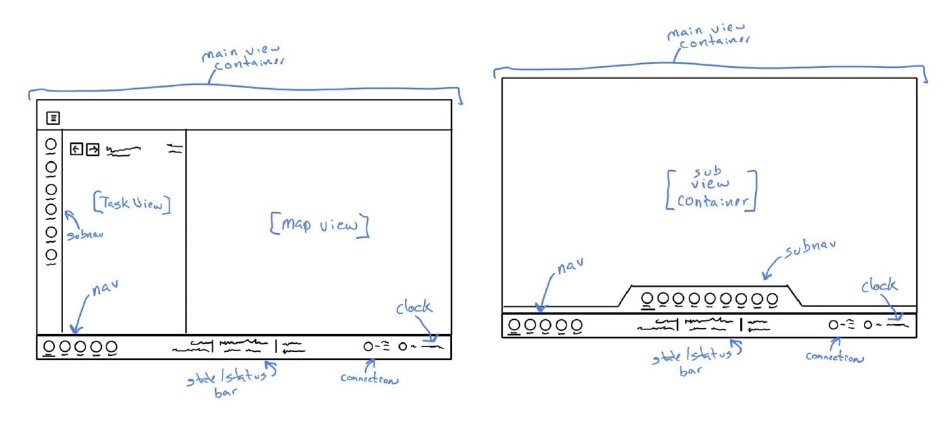 main view
container
[Task View]
subnav
[map view]
nav
clock
state/status
bar
connection
main view
container
[sub
view
container]
subnav
nav
clock
state/status
bar
connection